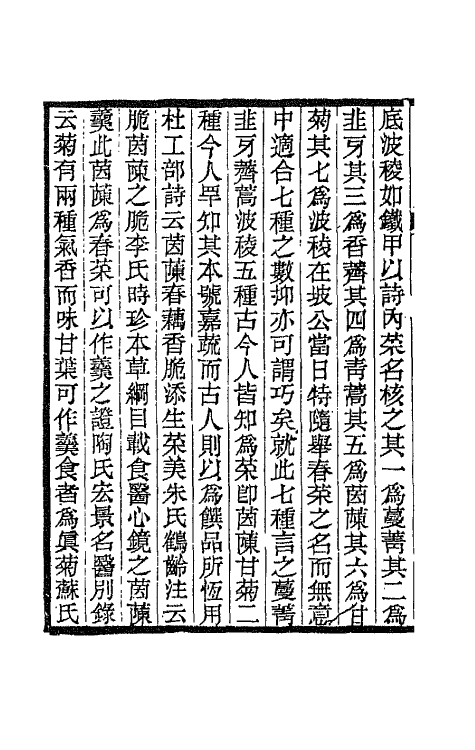 底波稜如鐵甲以詩內菜名核之其一爲蔓菁其二爲
韭牙其三爲香薺其四爲靑蒿其五爲茵蔯其六爲甘
菊其七爲波稜在坡公當日特隨舉春菜之名而無意
中適合七種之數抑亦可謂巧矣就此七種言之蔓菁
韭牙薺蒿波稜五種古今人皆知爲菜卽茵蔯甘菊二
種今人罕知其本號嘉蔬而古人則以爲饌品所恆用
杜工部詩云茵蔯春藕香脆添生菜美朱氏鶴齡注云
脆茵蔯之脆李氏時珍本草綱目載食醫心鏡之茵蔯
羹此茵蔯爲春菜可以作羹之證陶氏宏景名醫別錄
云菊有兩種氣香而味甘葉可作羹食者爲眞菊蘇氏